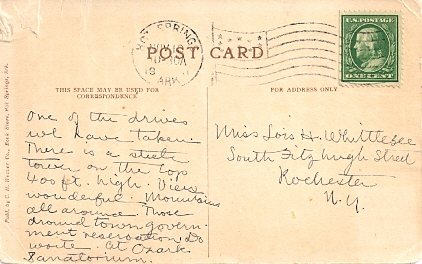 HOT SPRINGS
ARK.
POST CARD
U.S. POSTAGE
ONE CENT
THIS SPACE MAY BE USED FOR
CORRESPONDENCE
FOR ADDRESS ONLY
One of the drives
we have taken.
There is a steele
tower on the top
400 ft. high. Views
wonderful. Mountains
all around. Those
around town govern-
ment reservation. Do
write. At Ozark
Sanatorium.
Miss Lois H. Whittlesee
South Fitzhugh Street
Rochester
N.Y.